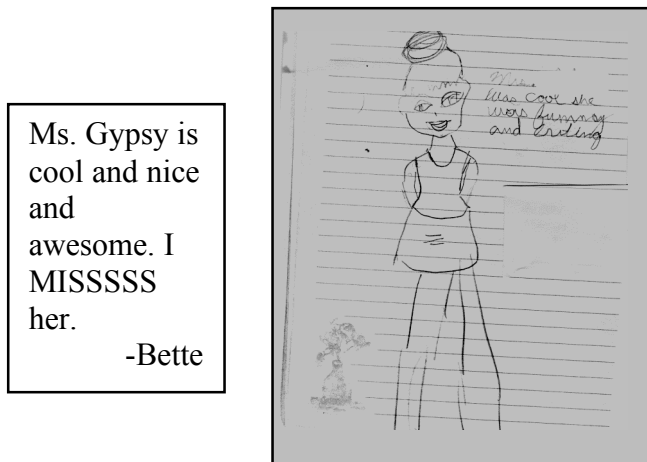 Ms. Gypsy is
cool and nice
and
awesome. I
MISSSSS
her.
-Bette
was cool she
was funny
and